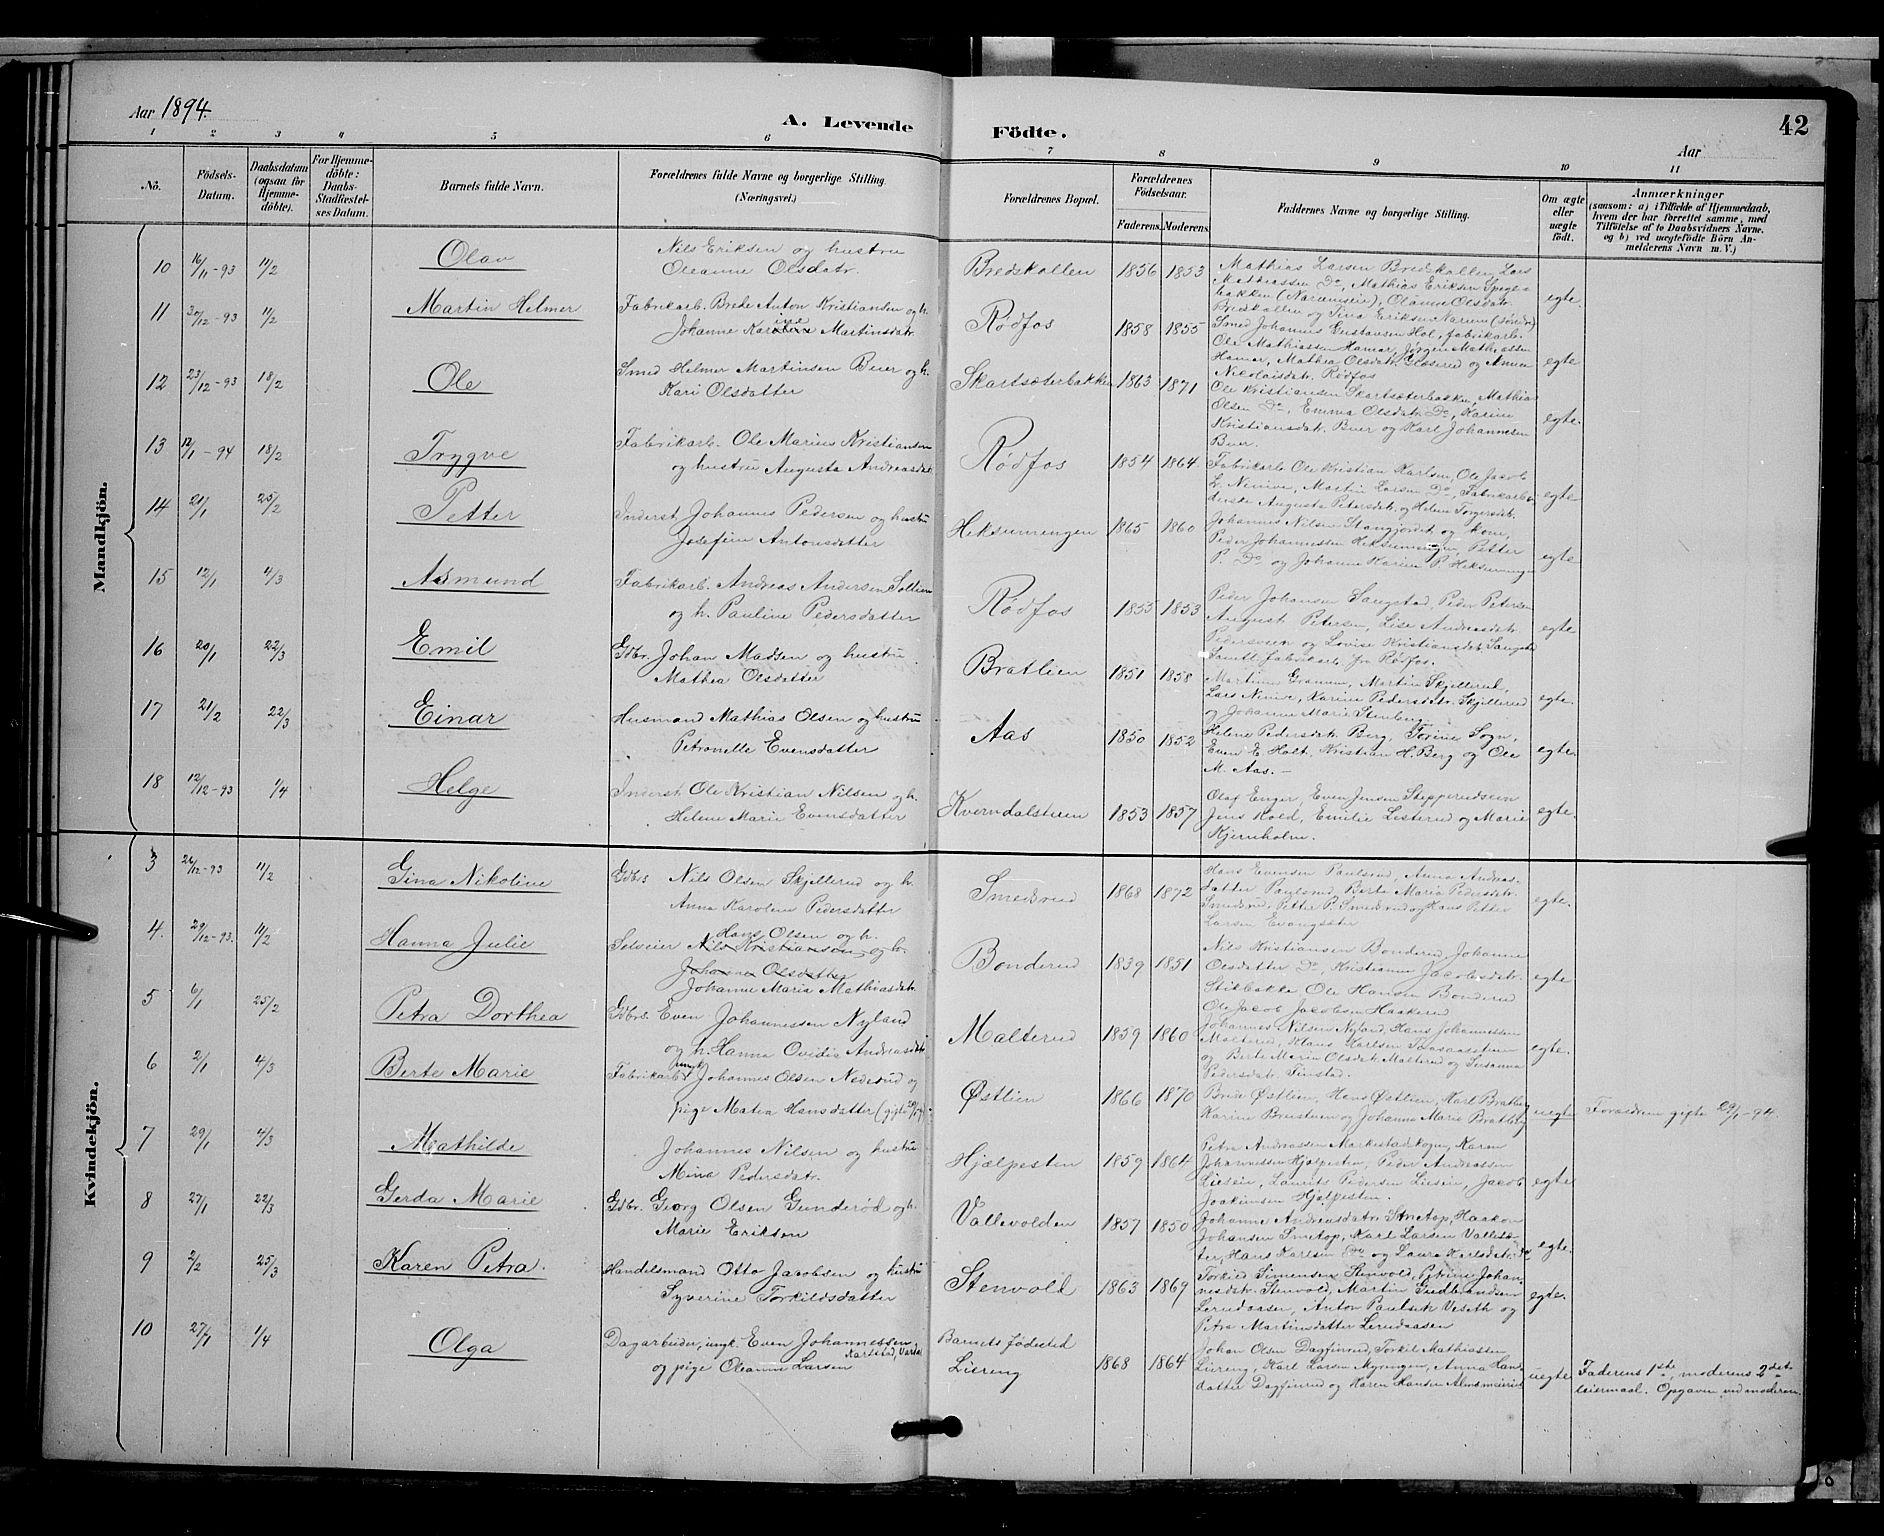 Aar 1894.
A. Levende Födte.
42
Aar
1 2 3 4 5 6 7 8 9 10 11
No.
Födsels-Datum.
Daabsdatum (ogsaa for Hjemme-döbte).
For Hjemme-döbte: Daabs-Stadfæstel-ses Datum.
Barnets fulde Navn.
Forældrenes fulde Navne og borgerlige Stilling.
(Næringsvei.)
Forældrenes Bopæl.
Forældrenes Födselsaar.
Faderens. Moderens.
Faddernes Navne og borgerlige Stilling.
Om ægte eller uægte födt.
Anmærkninger
(saasom: a) i Tilfælde af Hjemmedaab,
hvem der har forrettet samme, med
Tilföielse af to Daabsvidners Navne.
og b) ved uægtefödte Börn An-
melderens Navn m. V.)
Mandkjön.
10 16/11-93 11/2 Olav
Nils Eriksen og hustru
Oleanne Olsdatr.
Bredskallen 1856 1853
Mathias Larsen Bredskallen, Lars
Mathiassen Do, Mathias Eriksen
bakken Olanne Olsdatr.
Bredskallen og Eriksen
egte.
11 30/12-93 11/2 Martin Helmer
Fabrikarb. Brede Anton Kristiansen og h.
Johanne Karoline Martinsdatr.
Rødfos 1858 1855
Smed Johannes Gustavsen Hol, fabrikarb.
Ole Mathiassen Hamar, Jørgen Mathiassen
Hamar, Mathea Olsdatr. og Anne
Nicolaisdatr. Rødfos
egte
12 23/12-93 18/2 Ole
Smed Helmer Martinsen Buer og h.
Kari Olsdatter
Skartsæterbakken 1863 1871
Ole Kristiansen Skartsæterbakken, Mathias
Olsen Do, Emma Olsdatr. Do, Karine
Kristiansdatr. Buer og Karl Johannesen
Buer.
egte.
13 12/1-94 18/2 Trygve
Fabrikarb. Ole Marius Kristiansen
og hustru Augusta Andreasdat.
Rødfos 1854 1864
Fabrikarb Ole Kristian Karlsen, Ole Jacob
L. Ninive, Martin Larsen Do, Fabrikarbei-
derske Augusta Petersdatr. og Helene Torgersdatr.
egte
14 21/1 25/2 Petter
Inderst Johannes Pedersen og hustru
Josefine Antonsdatter
Heksumringen 1865 1860
Johannes Nilsen Stangjordet og kone,
Peder Johannessen Petter
P. Do og Johanne Karine P.
egte
15 12/1 4/3 Asmund
Fabrikarb. Andreas Andersen Sollien
og h. Pauline Pedersdatter
Rødfos 1855 1853
Peder Johansen Sangstad, Peder Petersen
August Petersen, Lise Andreasdatr.
og Lovise Kristiansdatr. Sangstad
fabrikarb. fra Rødfos.
egte
16 20/1 22/3 Emil
Gdbr. Johan Madsen og hustru
Mathea Olsdatter
Bratlien 1851 1858
Martin Skjellerud,
Lars Ninive, Karine Pedersdatr. Skjellerud
og Johanne Marie Stenberg
egte.
17 21/2 22/3 Einar
Husmand Mathias Olsen og hustru
Petronelle Evensdatter
Aas 1850 1852
Helene Pedersdatr. Berg, Torine Sogn,
Even E Holt, Kristian H. Berg og Ole
M. Aas.-
egte.
18 12/12-93 1/4 Helge
Inderst Ole Kristian Nilsen og h.
Helene Marie Evensdatter
Kverndalstuen 1853 1857
Olaf Enger, Even Jensen
Jens Kold, Emilie Lesterud og Marie
Kjernholm.
egte.
Kvindekjön.
3 26/12-93 11/2 Gina Nikoline
Gdbrs Nils Olsen Skjellerud og h.
Anna Karoline Pedersdatter
Smedsrud 1868 1872
Hans Evensen Paulsrud, Anna Andreas-
datter Paulsrud, Berte Maria Pedersdatr.
Smedsrud, Petter P. Smedsrud og Hans Petter
Larsen
egte.
4. 29/12-93. 11/2 Hanna Julie
Hans Olsen og h.
Selveier Nils Kristiansen og h.
Johanne Olsdatter
Johanne Maria Mathiasdatr.
Bonderud 1839 1851
Nils Kristiansen Bonderud Johanne
Olsdatter Do, Kristianne Jacobsdatr.
Stikbakke Ole Hansen Bonderud
Ole Jacob Jacobsen Haakerud
egte
5 6/1 25/2 Petra Dorthea
Gdbrs. Even Johannessen Nyland
og h. Hanna Ovidia Andreasdatr
Malterud 1859 1860
Johannes Nilsen Nyland, Hans Johannessen
Malterud, Klaus Karlsen
og Berte Marie Olsdatr. Malterud og Susanna
Pedersdatr. Finstad.
egte.
6 2/1 4/3 Berte Marie
Fabrikarb. ungk. Johannes Olsen Nederud og
pige Matea Hansdatter (gifte 29/1 94).
Østlien 1866 1870
Brede Østlien, Hans Østlien, Karl Bratberg
Karine og Johanne Marie Bratberg
uegte
Foraeldrene gifte 29/1-94.
7 29/1 4/3 Mathilde
Johannes Nilsen og hustru
Mina Pedersdatr.
Hjælpesten 1859 1864
Petra Andreassen Karen
Johannessen Hjælpesten, Peder Andreassen
Lieseie, Laurits Pedersen Lieseie, Jacob
Joakimsen Hjælpesten.
egte
8 27/1 22/3 Gerda Marie
Gdbr. Georg Olsen Gunderød og h.
Marie Eriksen
Vallevolden 1857 1850
Johanne Andreasdatr. Haakon
Johansen Karl Larsen Vallesæ-
ter, Hans Karlsen Do og Laura Karlsdatr. Do
egte.
9 2/2 25/3 Karen Petra.
Handelsmand Otto Jacobsen og hustru
Syverine Torkildsdatter
Stenvold 1863 1869
Torkild Simensen Stenvold, Petrine Johan-
nesdatr. Stenvold, Martin Gudbrandsen
Lerudaasen, Anton Paulsen Veseth og
Petra Martinsdatter Lerudaasen
egte.
10 27/1 1/4 Olga
Dagarbeider, ungk. Even Johannessen,
Karlstad, Vardal
og pige Oleanne Larsen
Barnets fødested
Liereng 1868 1864
Johan Olsen Dagfinrud, Torkil Mathiassen
Liereng, Karl Larsen Myrengen, Anna Han-
datter Dagfinrud og Karen Hansen
uegte
Faderens 1ste, moderens 2det
leiermaal. Opgaven ved moderen.